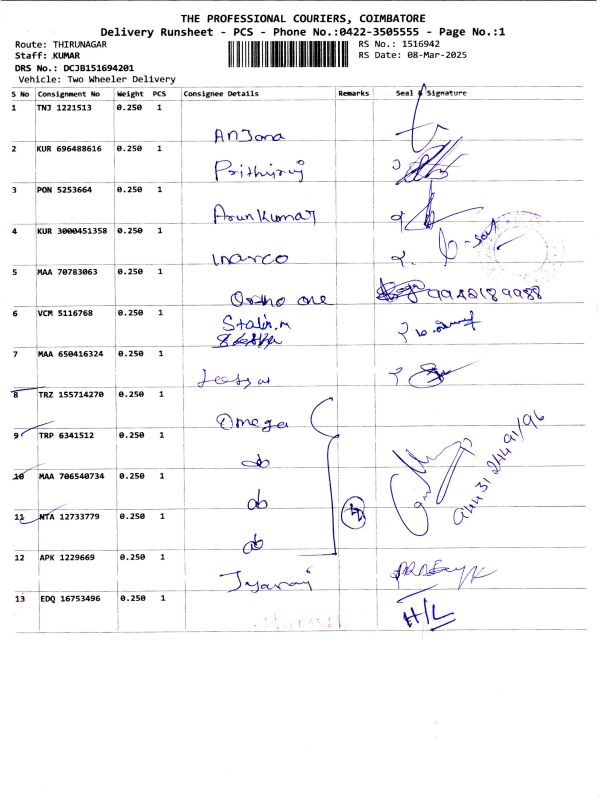 THE PROFESSIONAL COURIERS, COIMBATORE
Delivery Runsheet - PCS - Phone No.:0422-3505555 - Page No.:1
Route: THIRUNAGAR RS No.: 1516942
Staff: KUMAR RS Date: 08-Mar-2025
DRS No.: DCJB151694201
Vehicle: Two Wheeler Delivery
S No Consignment No Weight PCS Consignee Details Remarks Seal & Signature
1 TNJ 1221513 0.250 1
Anjana
2 KUR 696488616 0.250 1
Prithiraj
3 PON 5253664 0.250 1
Arunkumar
4 KUR 3000451358 0.250 1
inarco
5 MAA 70783063 0.250 1
Ortho one 9942189988
6 VCM 5116768 0.250 1
Stalin.m
7 MAA 650416324 0.250 1
8 TRZ 155714270 0.250 1
Omega
9 TRP 6341512 0.250 1
do
10 MAA 706540734 0.250 1
do
11 NTA 12733779 0.250 1
do
12 APK 1229669 0.250 1
Jyaraj
13 EDQ 16753496 0.250 1
H/L